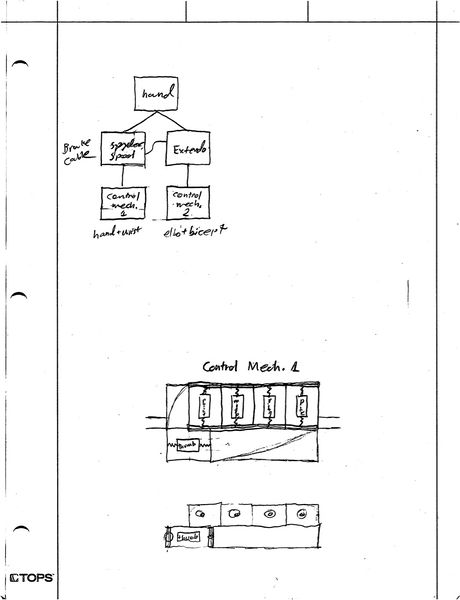 hand
Brake
Cable
spool
Extendo
control
mech.
1
control
mech.
2
hand + wrist
elbo + bicept
Control Mech. 1
thumb
thumb
TOPS